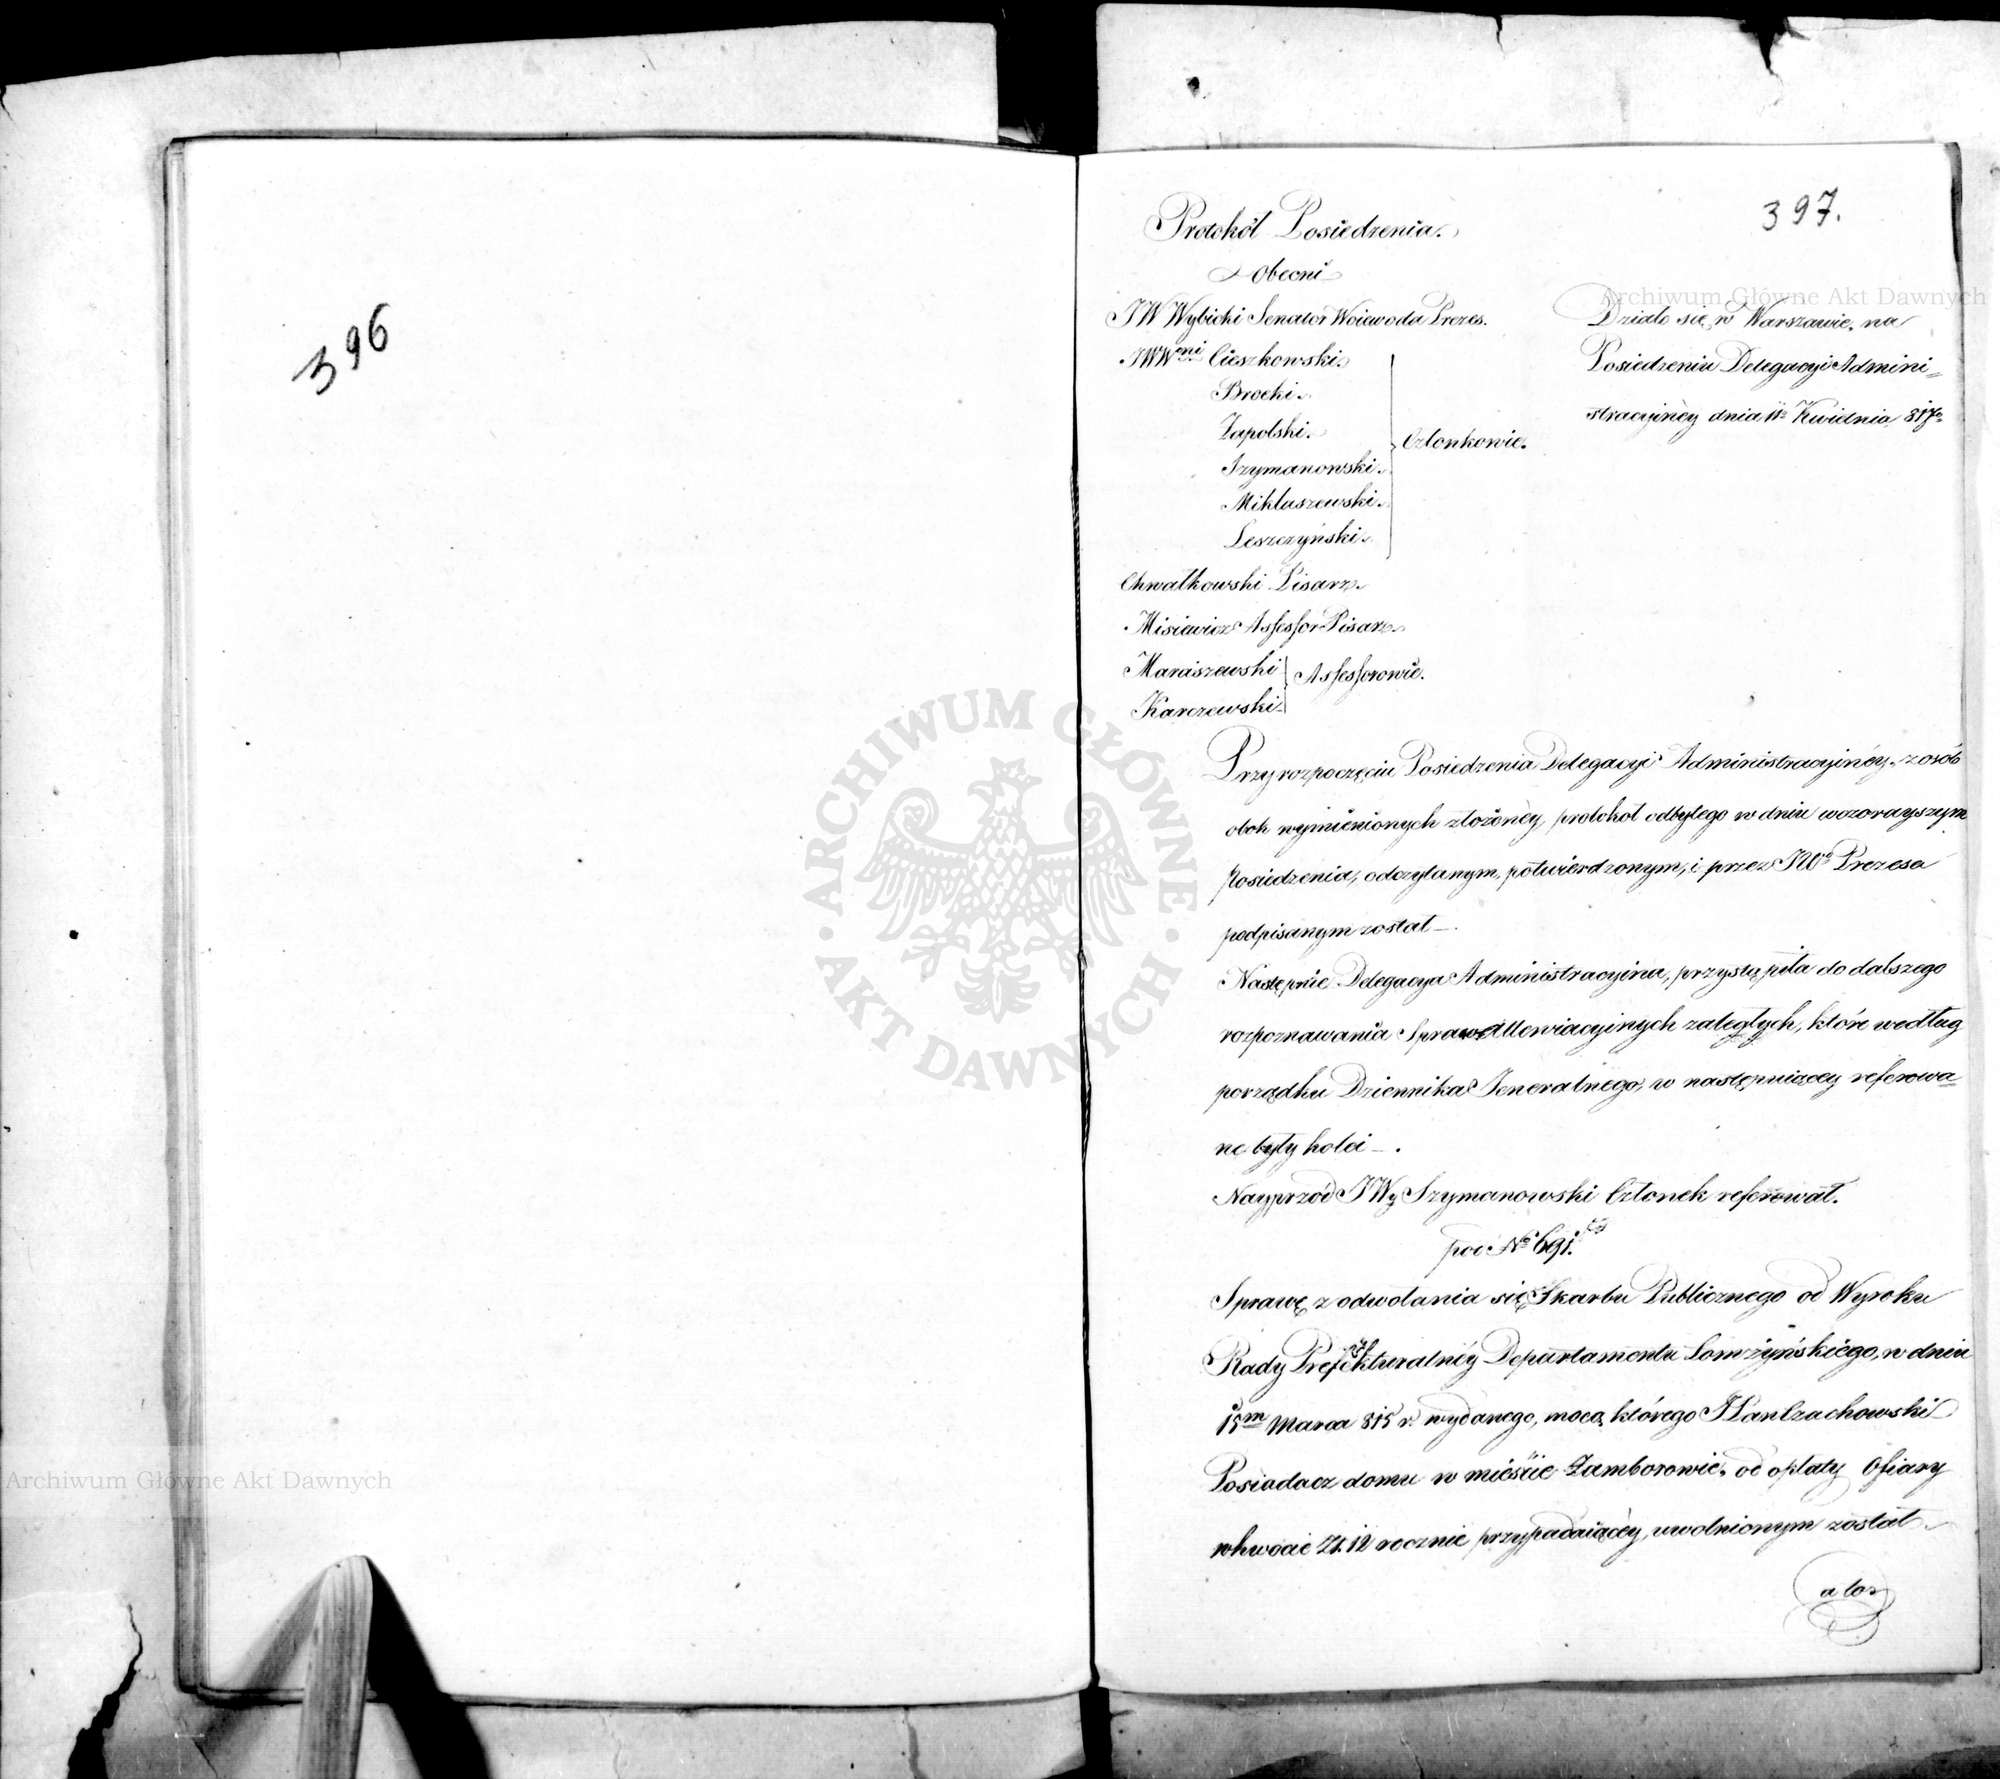 396
397.
Protokół Posiedzenia.
Obecni
JW Wybicki Senator Woiewoda Prezes.
JWWni Cieszkowski.
Brocki.
Zapolski.
Szymanowski.
Miklaszewski.
Leszczyński.
Członkowie.
Chwałkowski Pisarz.
Misiewicz Assessor Pisarz.
Maraszewski
Karczewski
Assessorowie.
Działo się w Warszawie, na
Posiedzeniu Delegacyi Admini-
stracyinéy dnia 11o Kwietnia 817o
Przy rozpoczęciu Posiedzenia Delegacyi Administracyinéy, z osób
obok wymienionych złożonéy, protokół odbytego w dniu wczorayszym
Posiedzenia, odczytanym, potwierdzonym, i przez JWo Prezesa
podpisanym został —.
Następnie Delegacya Administracyina, przystąpiła do dalszego
rozpoznawania Spraw Alleviacyinych zaległych, które według
porządku Dziennika Jeneralnego, w następuiącey referowa-
ne były kolei —.
Nayprzód JWy Szymanowski Członek referował.
pod No 691.
Sprawę z odwołania się Skarbu Publicznego od Wyroku
Rady Prefekturalnéy Departamentu Łomżyńskiego, w dniu
15m Marca 815 r. wydanego, mocą którego Jan Czachowski
Posiadacz domu w mieście Zamborowie, od opłaty Ofiary
w kwocie Zł. 12 rocznie przypadaiącéy, uwolnionym został
a to z
Archiwum Główne Akt Dawnych
Archiwum Główne Akt Dawnych
ARCHIWUM GŁÓWNE · AKT DAWNYCH ·